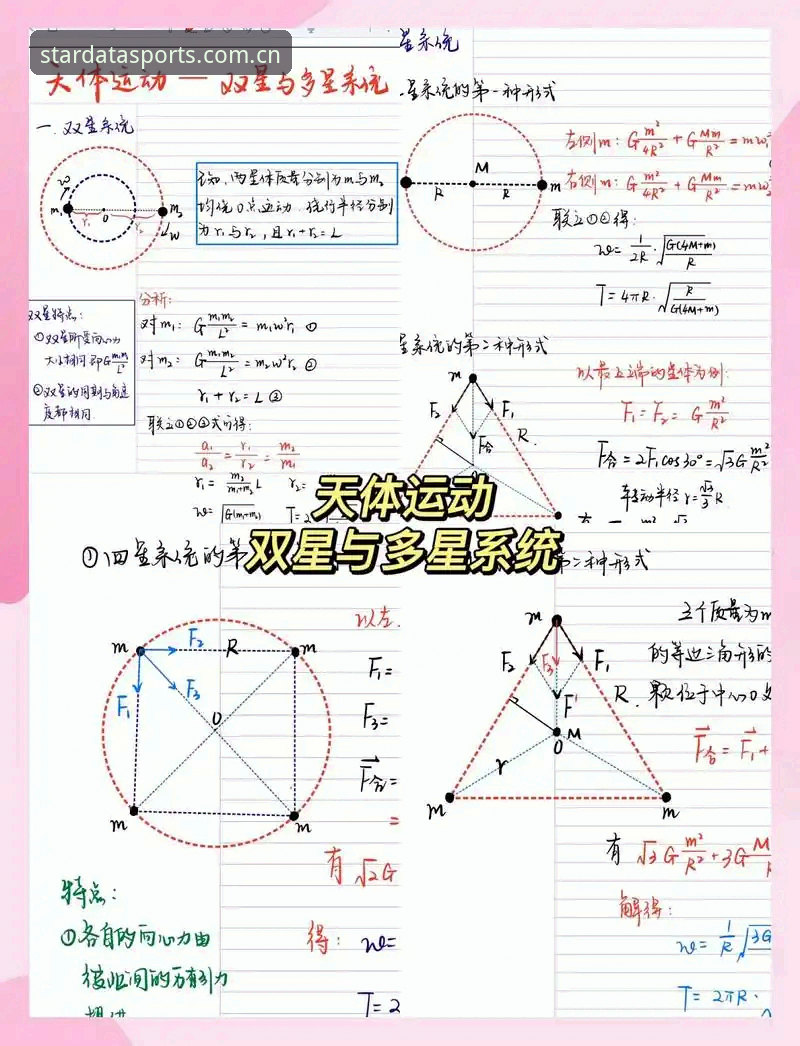 stardatasports.com.cn
天体运动 — 双星与多星系统
一、双星系统
ω
m₁
r₁
O
r₂
m₂
ω
已知,两星体质量分别为m₁与m₂
均绕O点运动,绕行半径分别
为r₁与r₂,且r₁+r₂=L
双星特点:
①双星所受向心力
大小相同,即G m₁m₂/L²
②双星的周期与角速
度都相同
分析:
对m₁: G m₁m₂/L² = m₁ω²r₁ ①
对m₂: G m₁m₂/L² = m₂ω²r₂ ②
r₁+r₂=L ③
联立①②③式可得:
a₁/a₂ = r₁/r₂ = m₂/m₁
r₁ = m₂/(m₁+m₂) L r₂=
ω= G(m₁+m₂) T=2
星系统
星系统的第一种形式
M
R
R
m
左侧m: G m²/4R² + G Mm/R² = mω
右侧m: G m²/4R² + G Mm/R² = mω
联立①②得:
ω = 1/2R · √(G(4M+m)/R)
T = 4πR · √(R/G(4M+m))
星系统的第二种形式
m
F₂
F₁
F合
R
以最上端的星体为例:
F₁ = F₂ = G m²/R²
F合 = 2F₁cos30° = √3 G m²/R²
转动半径 r = √3/3 R
天体运动
双星与多星系统
①四星系统的第
二种形式
m
F₂
R
m
F₁
F₃
O
m
m
以左
F₁=
F₃=
F合=
=
有 √2G
得: ω=
T=2
特点:
①各自的向心力由
彼此间的万有引力
m
F₂
F₃
F₁
F'
R
M
O
r
m
m
三个质量为m
的等边三角形的
颗位于中心O
F合 = F₁+
有 √3 G m²/R² + 3G M
解得:
ω = 1/R √3G
T = 2πR ·